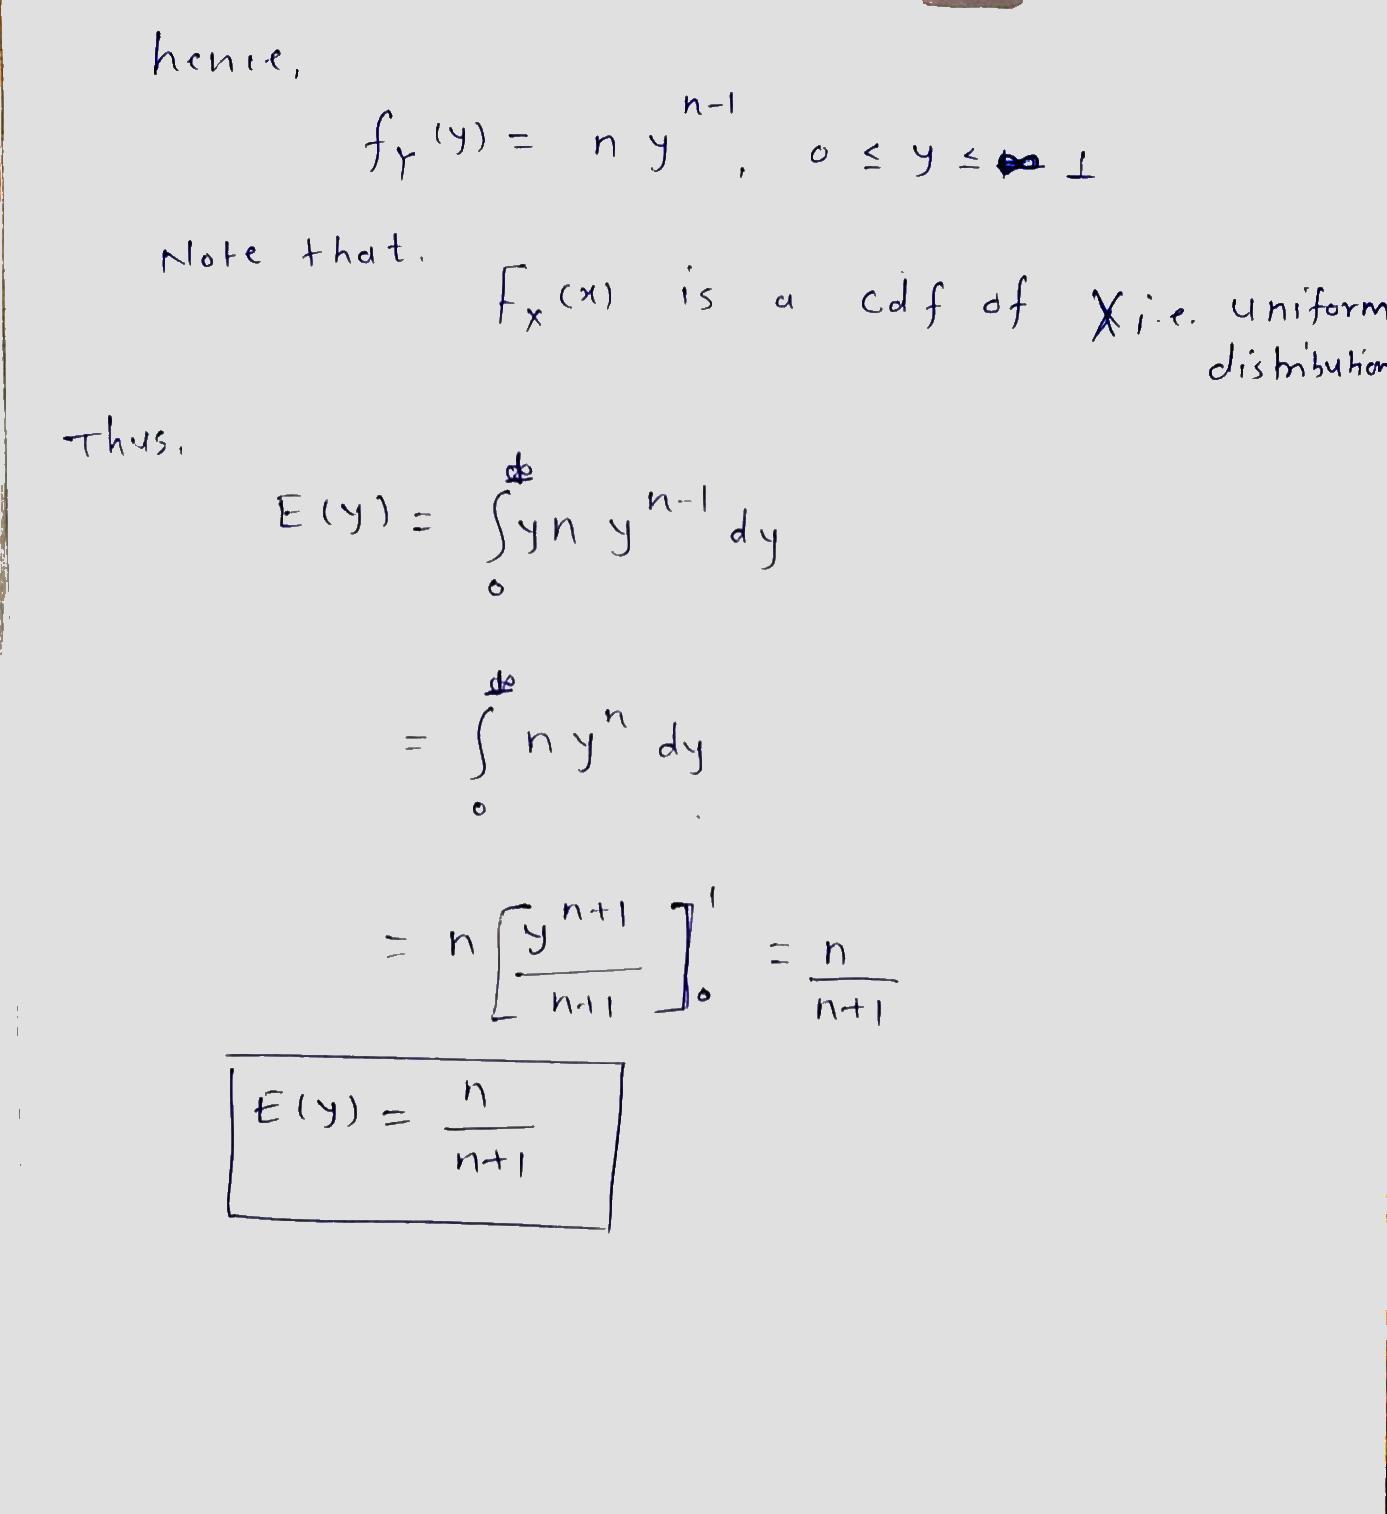 hence,
f_Y (y) = n y^{n-1}, 0 ≤ y ≤ 1
Note that.
F_X (x) is a cdf of X i.e. uniform
distribution
Thus,
E(y) = ∫_0 y n y^{n-1} dy
= ∫_0 n y^n dy
= n [ y^{n+1} / n+1 ]_0^1 = n / n+1
E(y) = n / n+1